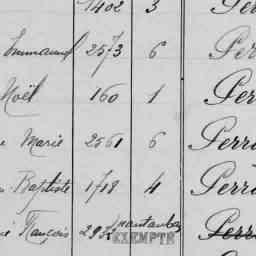 1402 3 Perr
Emmanuel 2573 6 Perr
Noël 160 1 Perr
e Marie 2561 6 Perr
n-Baptiste 1718 4 Perr
François 293 EXEMPTÉ Perr